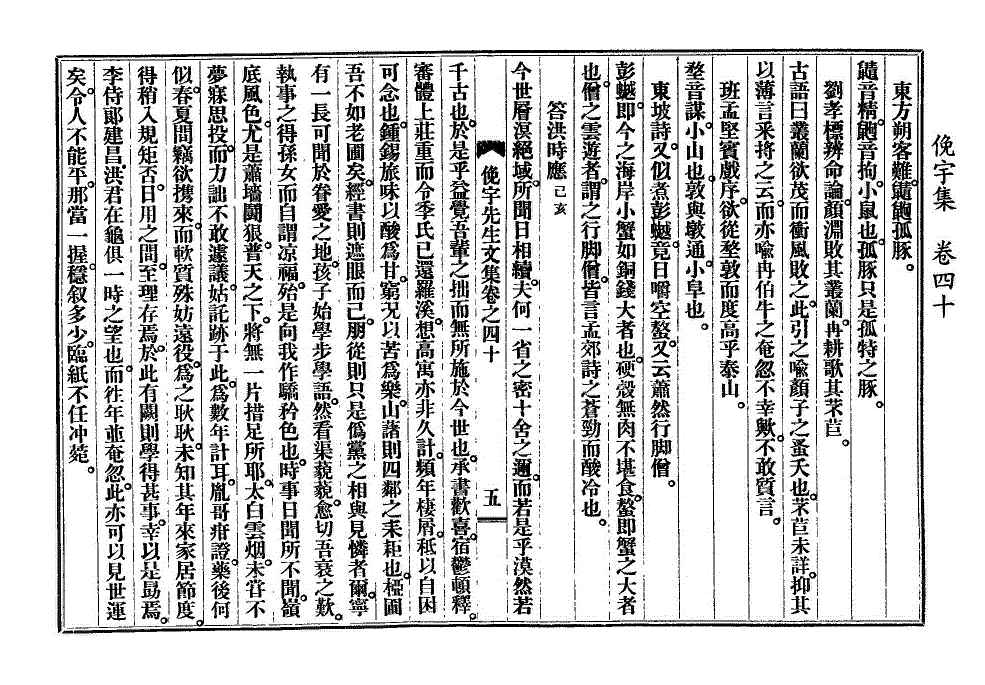 俛宇集　卷四十
東方朔客難。䶅鼩孤豚。
䶅音精。鼩音拘。小鼠也。孤豚只是孤特之豚。
劉孝標辨命論。顏淵敗其叢蘭。冉耕歌其芣苢。
古語曰叢蘭欲茂而衝風敗之。此引之喩顏子之蚤夭也。芣苢未詳。抑其
以薄言釆捋之云。而亦喩冉伯牛之奄忽不幸歟。不敢質言。
班孟堅賓戲序。欲從堥敦而度高乎泰山。
堥音謀。小山也。敦與墩通。小阜也。
東坡詩。又似煮彭𧑅。竟日嚼空螯。又云蕭然行脚僧。
彭𧑅。卽今之海岸小蟹如銅錢大者也。硬殼無肉不堪食。螯卽蟹之大者
也。僧之雲遊者。謂之行脚僧。皆言孟郊詩之蒼勁而酸冷也。
答洪時應 己亥
今世層溟絶域。所聞日相續。夫何一省之密十舍之邇。而若是乎漠然若
俛宇先生文集卷之四十　五
千古也。於是乎益覺吾輩之拙而無所施於今世也。承書歡喜。宿鬱頓釋。
審體上莊重而令季氏已還羅溪。想高寓亦非久計。頻年棲屑。秪以自困
可念也。鍾錫旅味以酸爲甘。窮况以苦爲樂。山藷則四鄰之耒耟也。檯圃
吾不如老圃矣。經書則遮眼而已。朋從則只是僞黨之相與見憐者爾。寧
有一長可聞於眷愛之地。孩子始學步學語。然看渠藐藐。愈切吾衰之歎。
執事之得孫女而自謂凉福。殆是向我作驕矜色也。時事日聞所不聞。嶺
底風色。尤是蕭墻鬪狠。普天之下。將無一片措足所耶。太白雲烟。未甞不
夢寐思投。而力詘不敢遽議。姑託跡于此。爲數年計耳。胤哥疳證。藥後何
似。春夏間竊欲携來。而軟質殊妨遠役。爲之耿耿。未知其年來家居節度。
得稍入規矩否。日用之間。至理存焉。於此有闕則學得甚事。幸以是勗焉。
李侍郞建昌洪君在龜俱一時之望也。而往年並奄忽。此亦可以見世運
矣。令人不能平。那當一握。穩叙多少。臨紙不任冲菀。